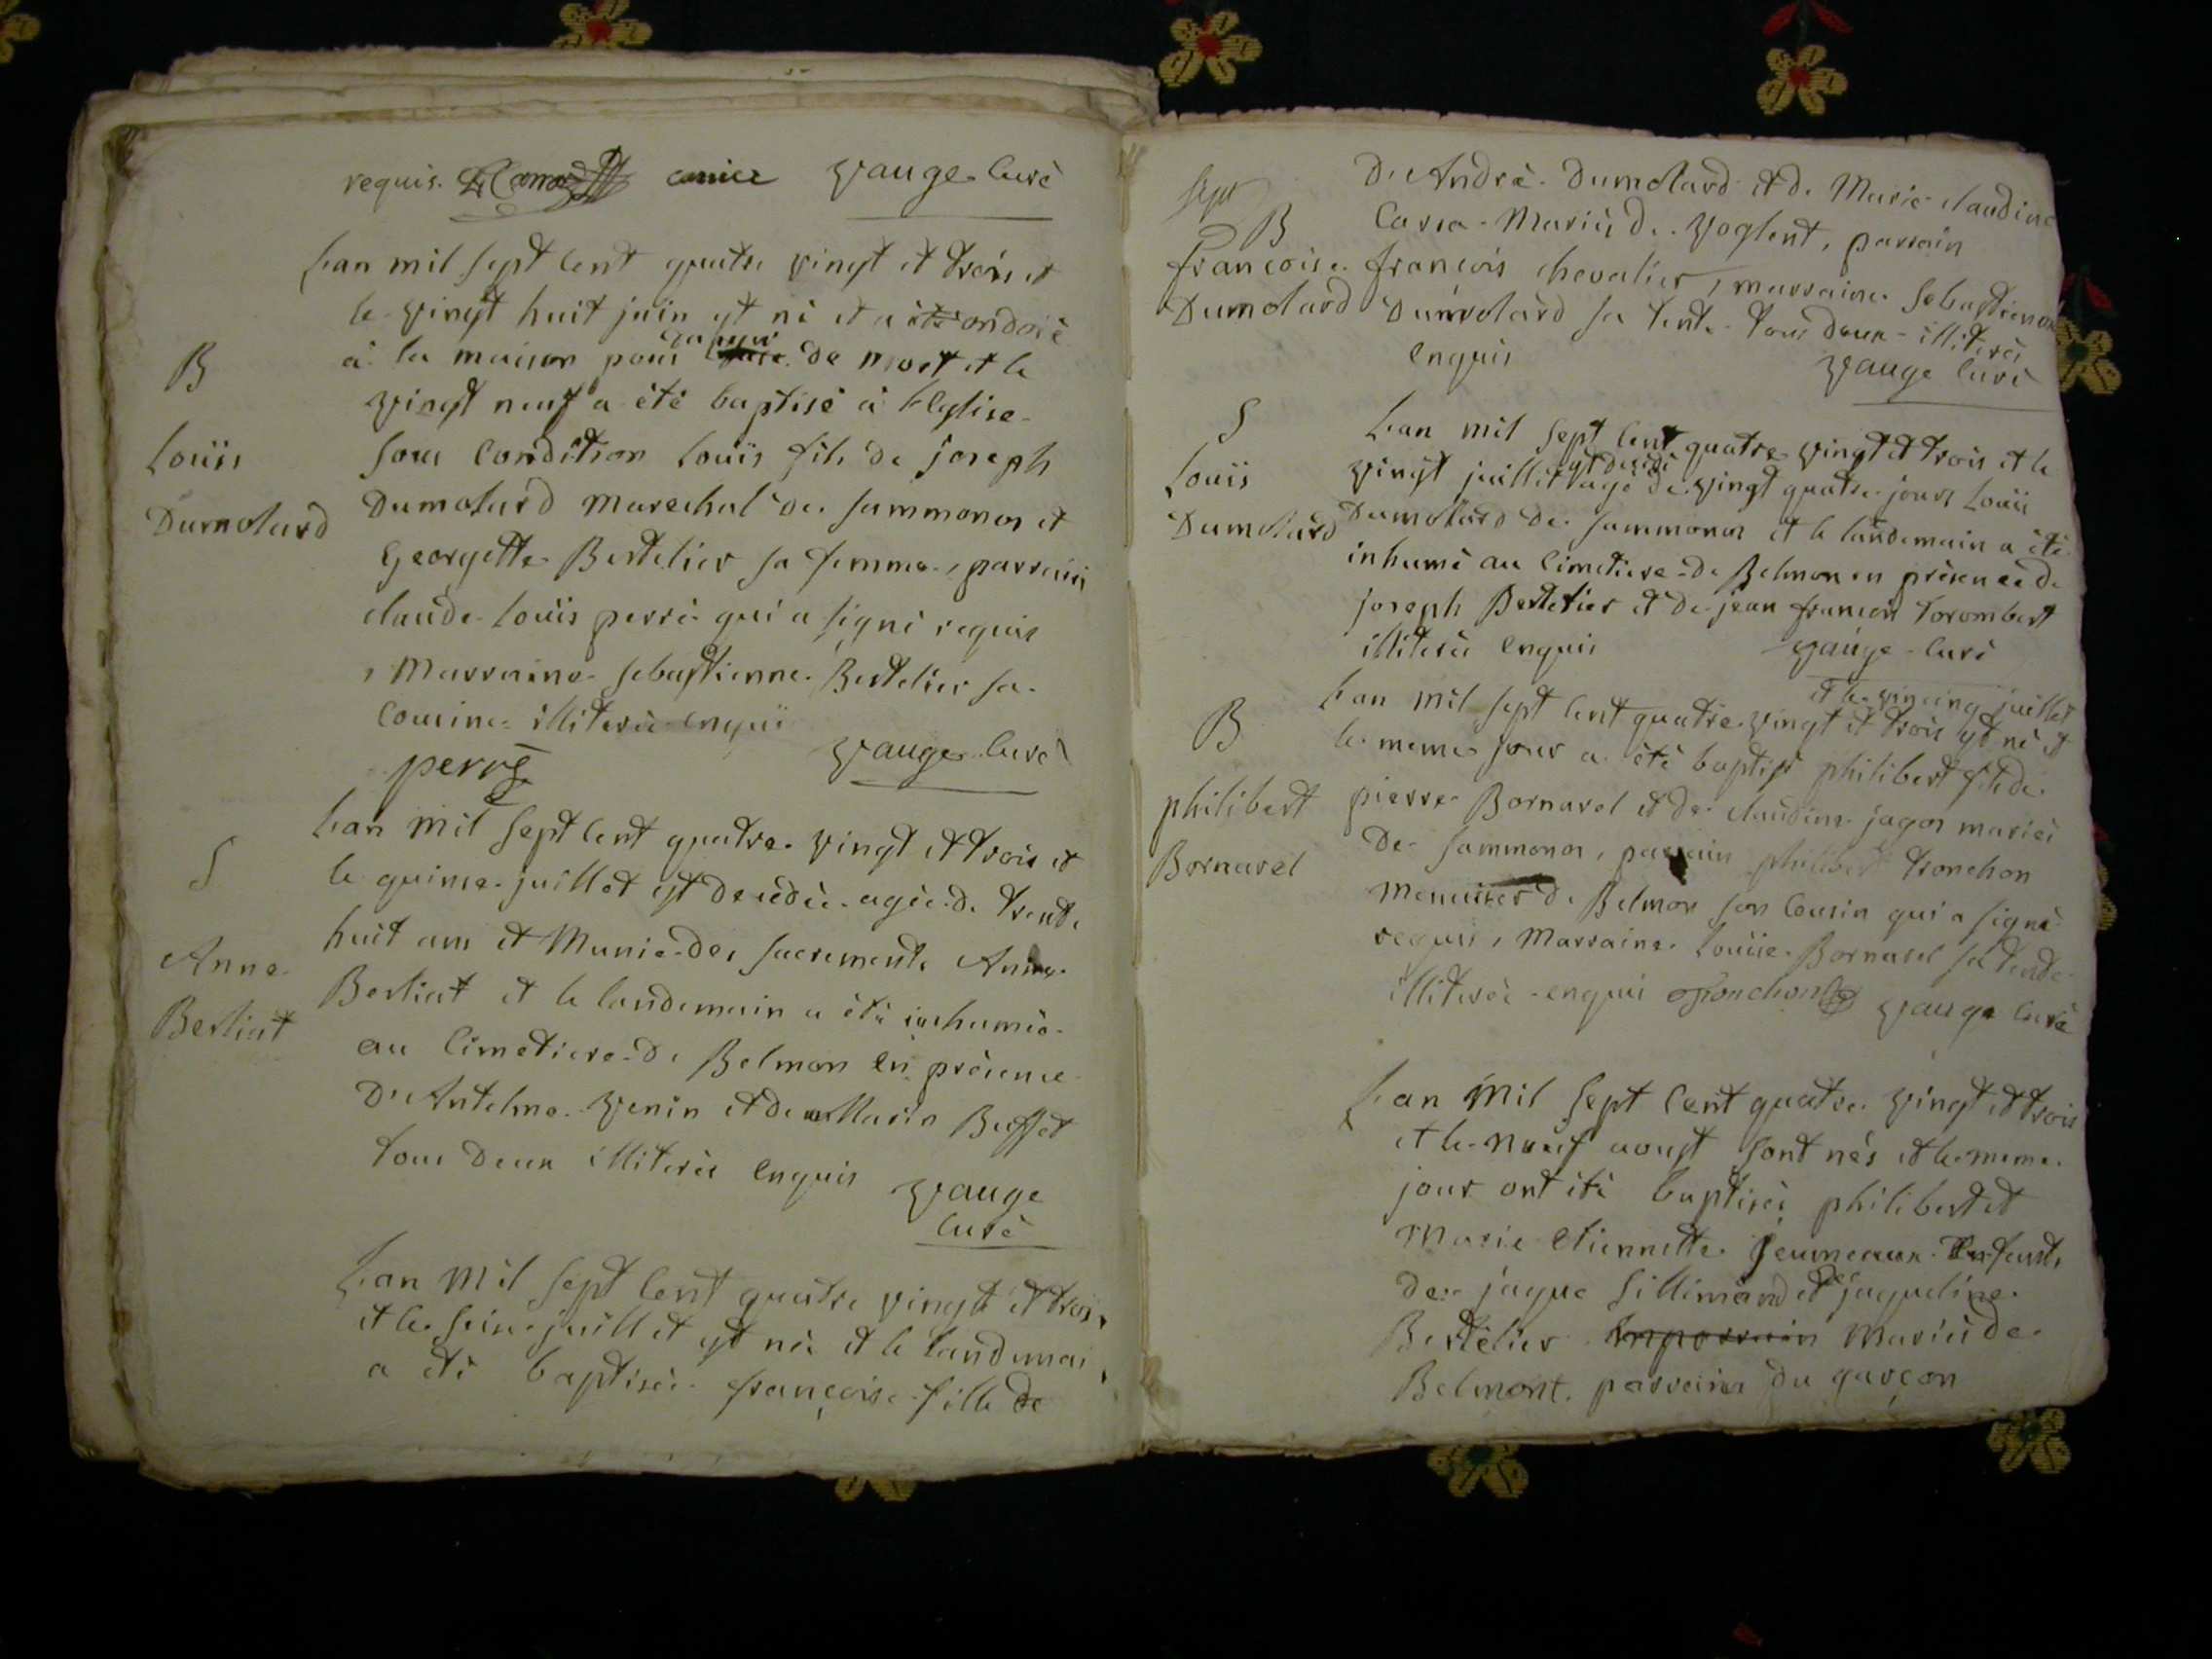 requis. amice vauge curé
Lan mil sept cent quatre vingt et trois et
le vingt huit juin est né et a été ondoié
à la maison pour danger de mort et le
B
vingt neuf a été baptisé à l'Eglise
Louïs
sous condition Louïs fils de joseph
Dumolard
Dumolard marechal de sammonos et
Georgette Bertelier sa femme, parrain
claude Louïs perré qui a signé requis
, Marraine sebastienne Bertelier sa
cousine illiterée enquis
perré
vauge curé
Lan mil sept cent quatre vingt et trois et
S
le quinse juillet est decédée agée de trente
huit ans et Munie des sacrements Anne
Anne
Berliat
Berliat et le landemain a été inhumée
au cimetiere de Belmon en présence
D'Antelme venin et de Marin Buffet
tous deux illiterés enquis vauge
curé
Lan Mil sept cent quatre vingt et trois
et le seise juillet est née et le landemai
a été baptisée françoise fille de
D'André Dumolard et de Marie claudine
sept
B
Carra Mariés de voglent, parrain
françoise
françois chevalier, marraine sebastienne
Dumolard
Dumolard sa tente tous deux illiterés
enquis
vauge curé
S
Lan mil sept cent quatre vingt et trois et le
Louïs
vingt juillet est decédé agé de vingt quatre jours Louïs
Dumolard
Dumolard de sammonos et le landemain a été
inhumé au cimetiere de Belmon en présence de
joseph Bertelier et de jean françois torombert
illiterés enquis
vauge curé
et le vincinq juillet
Lan mil sept cent quatre vingt et trois est né et
B
le meme jour a été baptisé philibert fils de
philibert
pierre Bornarel et de claudine jagos mariés
Bornarel
De sammonos, parrain philibert tronchon
menuisier de Belmon son cousin qui a signé
requis, Marraine Louïse Bornarel sa tente
illiterée enquis tronchon vauge curé
Lan Mil sept cent quatre vingt et trois
et le neuf aoust sont nés et le meme
jour ont été baptisés philibert et
Marie etiennette jeumeaux Enfants
de jaque sillimand et de jaqueline
Bertelier Mariés de
Belmont. parrain du garçon